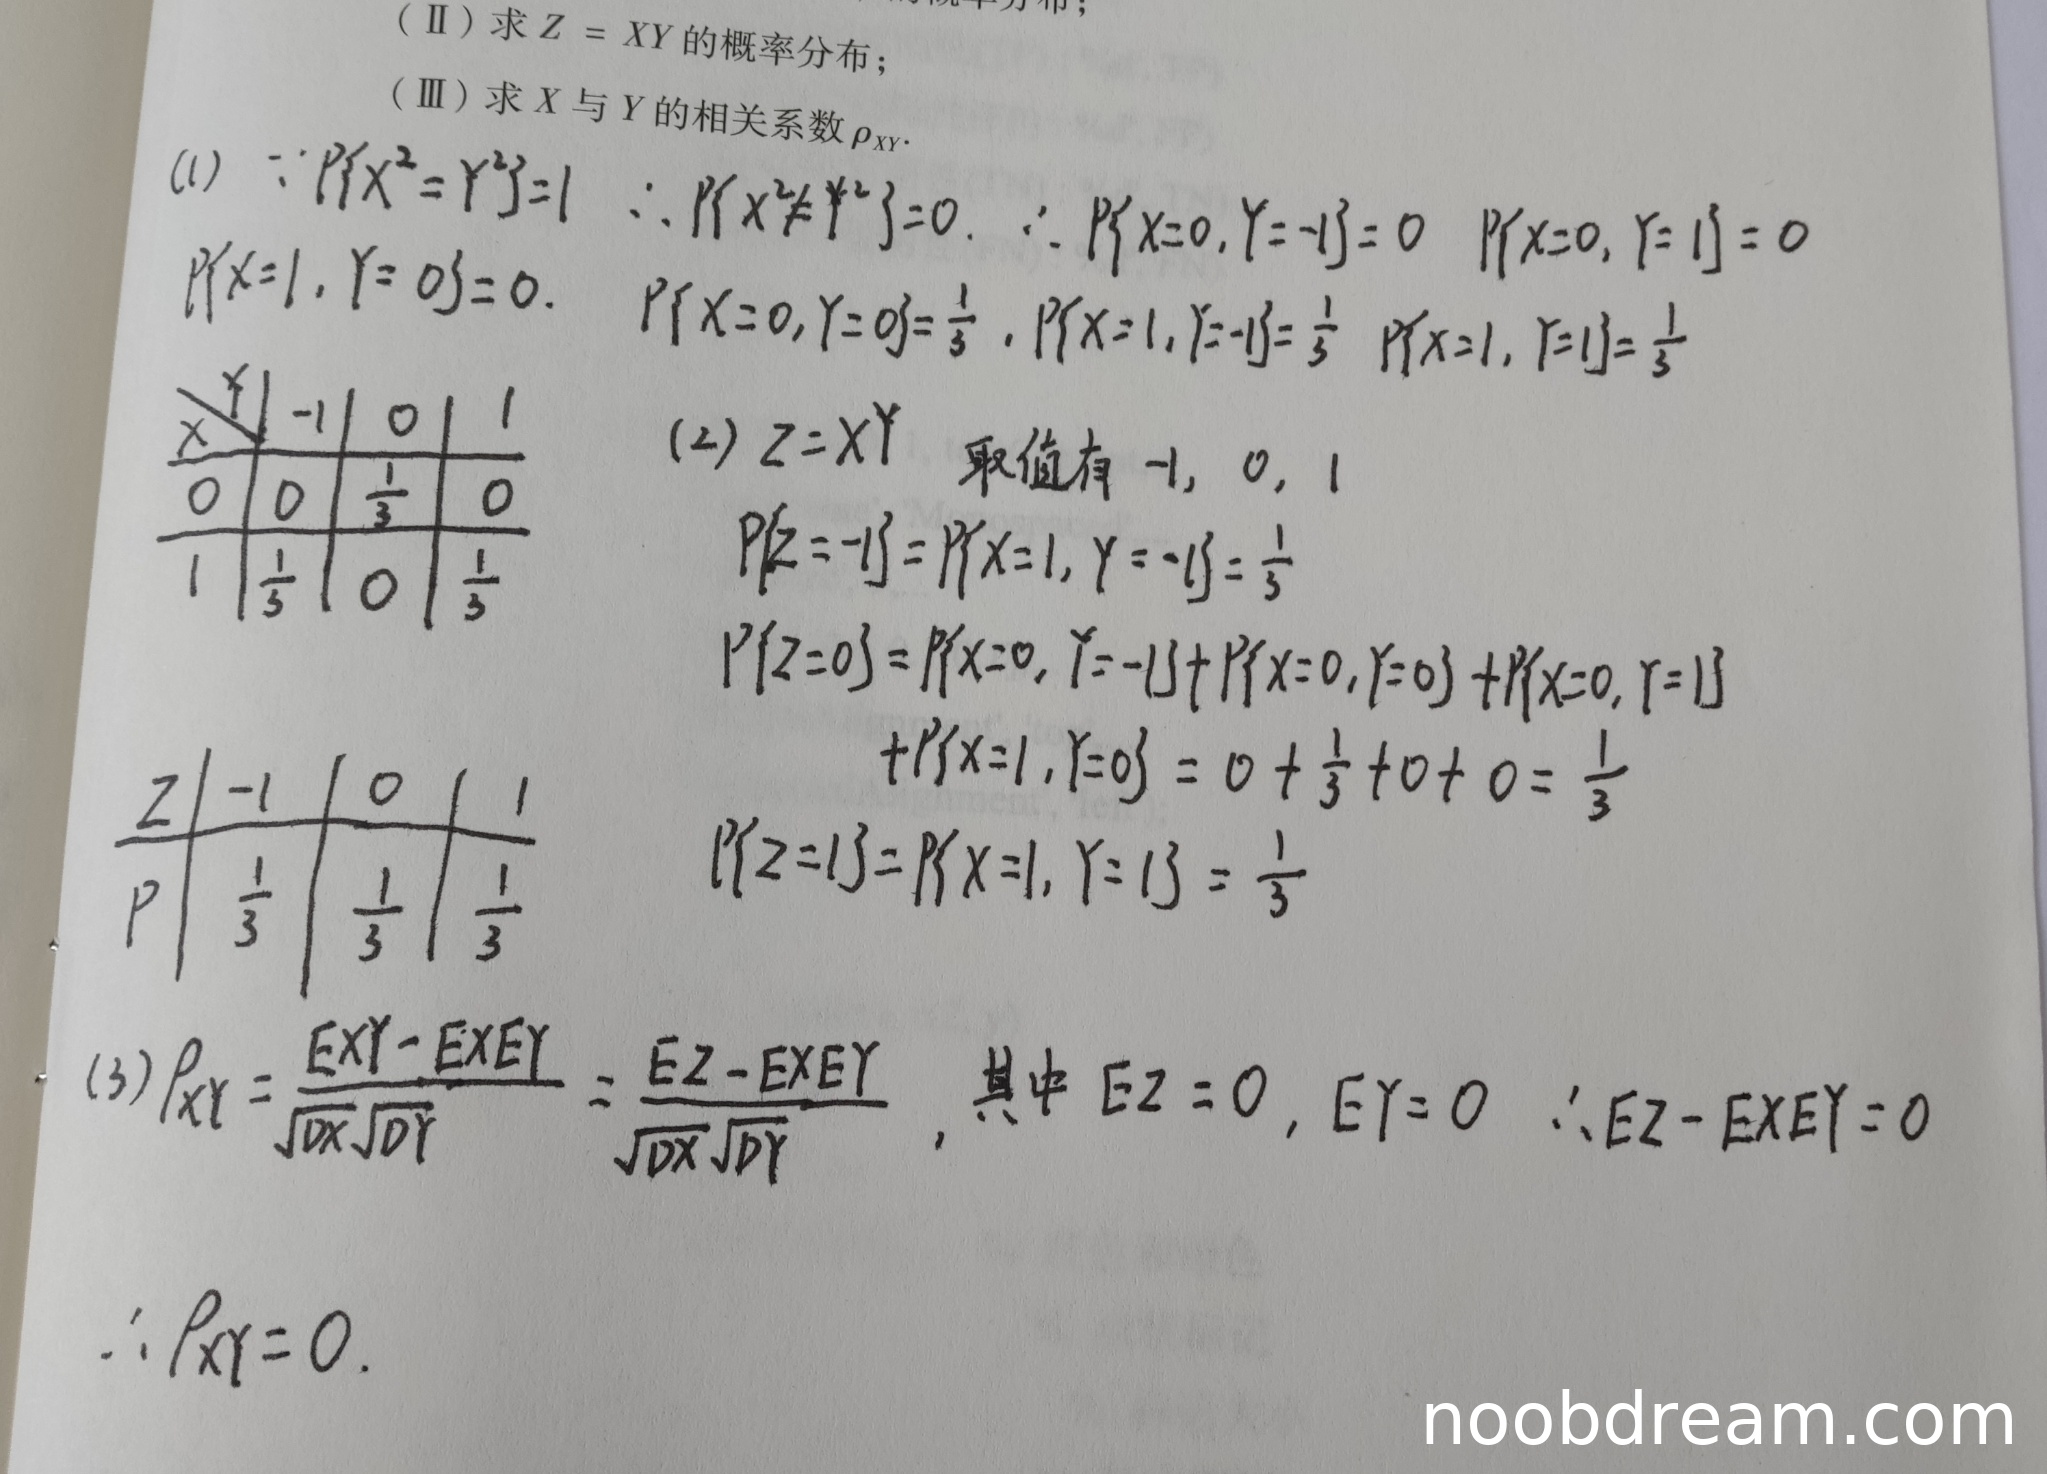 的概率分布；
（Ⅱ）求 Z = XY 的概率分布；
（Ⅲ）求 X 与 Y 的相关系数 ρ_XY.
(1) ∵ P{X²=Y²}=1 ∴ P{X²≠Y²}=0. ∴ P{X=0, Y=-1}=0 P{X=0, Y=1}=0
P{X=1, Y=0}=0. P{X=0, Y=0}=1/3, P{X=1, Y=-1}=1/3 P{X=1, Y=1}=1/3
X\Y | -1 | 0 | 1
0 | 0 | 1/3 | 0
1 | 1/3 | 0 | 1/3
(2) Z=XY 取值有 -1, 0, 1
P{Z=-1}=P{X=1, Y=-1}=1/3
P{Z=0}=P{X=0, Y=-1}+P{X=0, Y=0}+P{X=0, Y=1}
+P{X=1, Y=0} = 0+1/3+0+0=1/3
P{Z=1}=P{X=1, Y=1}=1/3
Z | -1 | 0 | 1
P | 1/3 | 1/3 | 1/3
(3) ρ_XY = (EXY-EXEY)/(√DX√DY) = (EZ-EXEY)/(√DX√DY), 其中 EZ=0, EY=0 ∴EZ-EXEY=0
∴ ρ_XY=0.
noobdream.com